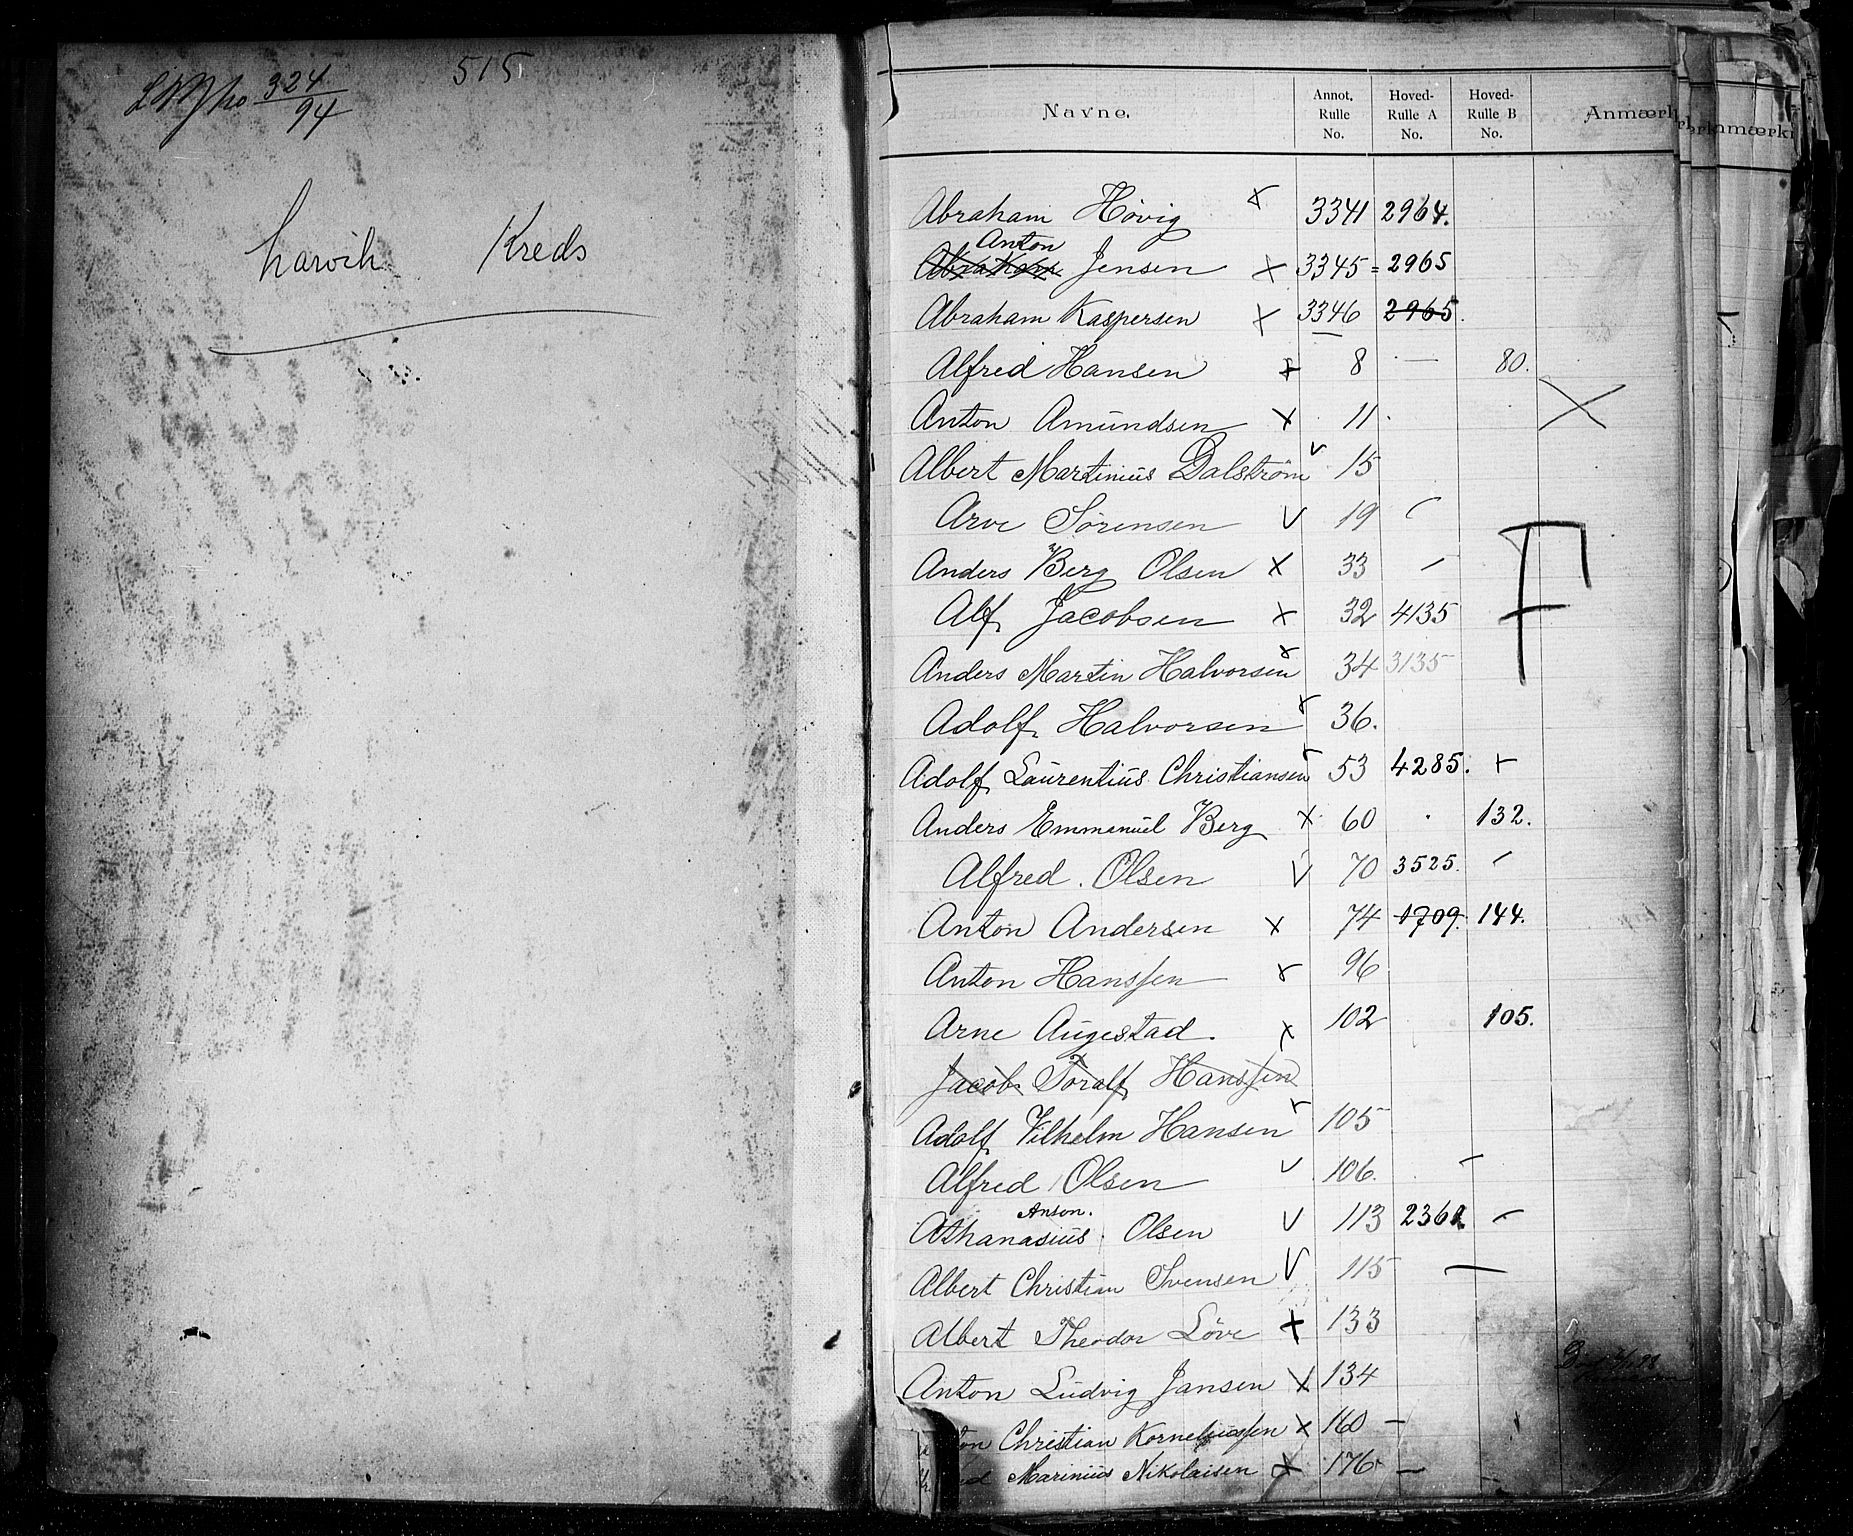 324
94
515
Larvik Kreds
Navne. Annot. Rulle No. Hoved-Rulle A No. Hoved-Rulle B No. Anmærk
Abraham Høvig x 3341 2964.
Anton
Abraham Jensen x 3345 = 2965
Abraham Kaspersen x 3346 2965.
Alfred Hansen x 8 — 80.
Anton Amundsen x 11. X
Albert Martinius Dalstrøm v 15
Arve Sørensen v 19
Anders Berg Olsen x 33 –
Alf Jacobsen x 32 4135 F
Anders Martin Halvorsen x 34 3135
Adolf Halvorsen 36.
Adolf Laurentius Christiansen 53 4285.
Anders Emmanuel Berg x 60 . 132.
Alfred Olsen v 70 3525. –
Anton Andersen x 74 1709. 144.
Anton Hanssen x 96
Arne Augestad. x 102 105.
Jacob Toralf Hanssen
Adolf Vilhelm Hansen 105
Alfred Olsen v 106. –
Anson.
Athanasius Olsen v 113 2362 –
Albert Christian Svensen v 115 —
Albert Theodor Löve x 133
Anton Ludvig Jansen x 134
ton Christian Korneliussen x 160 –
Marinius Nikolaisen x 176. –